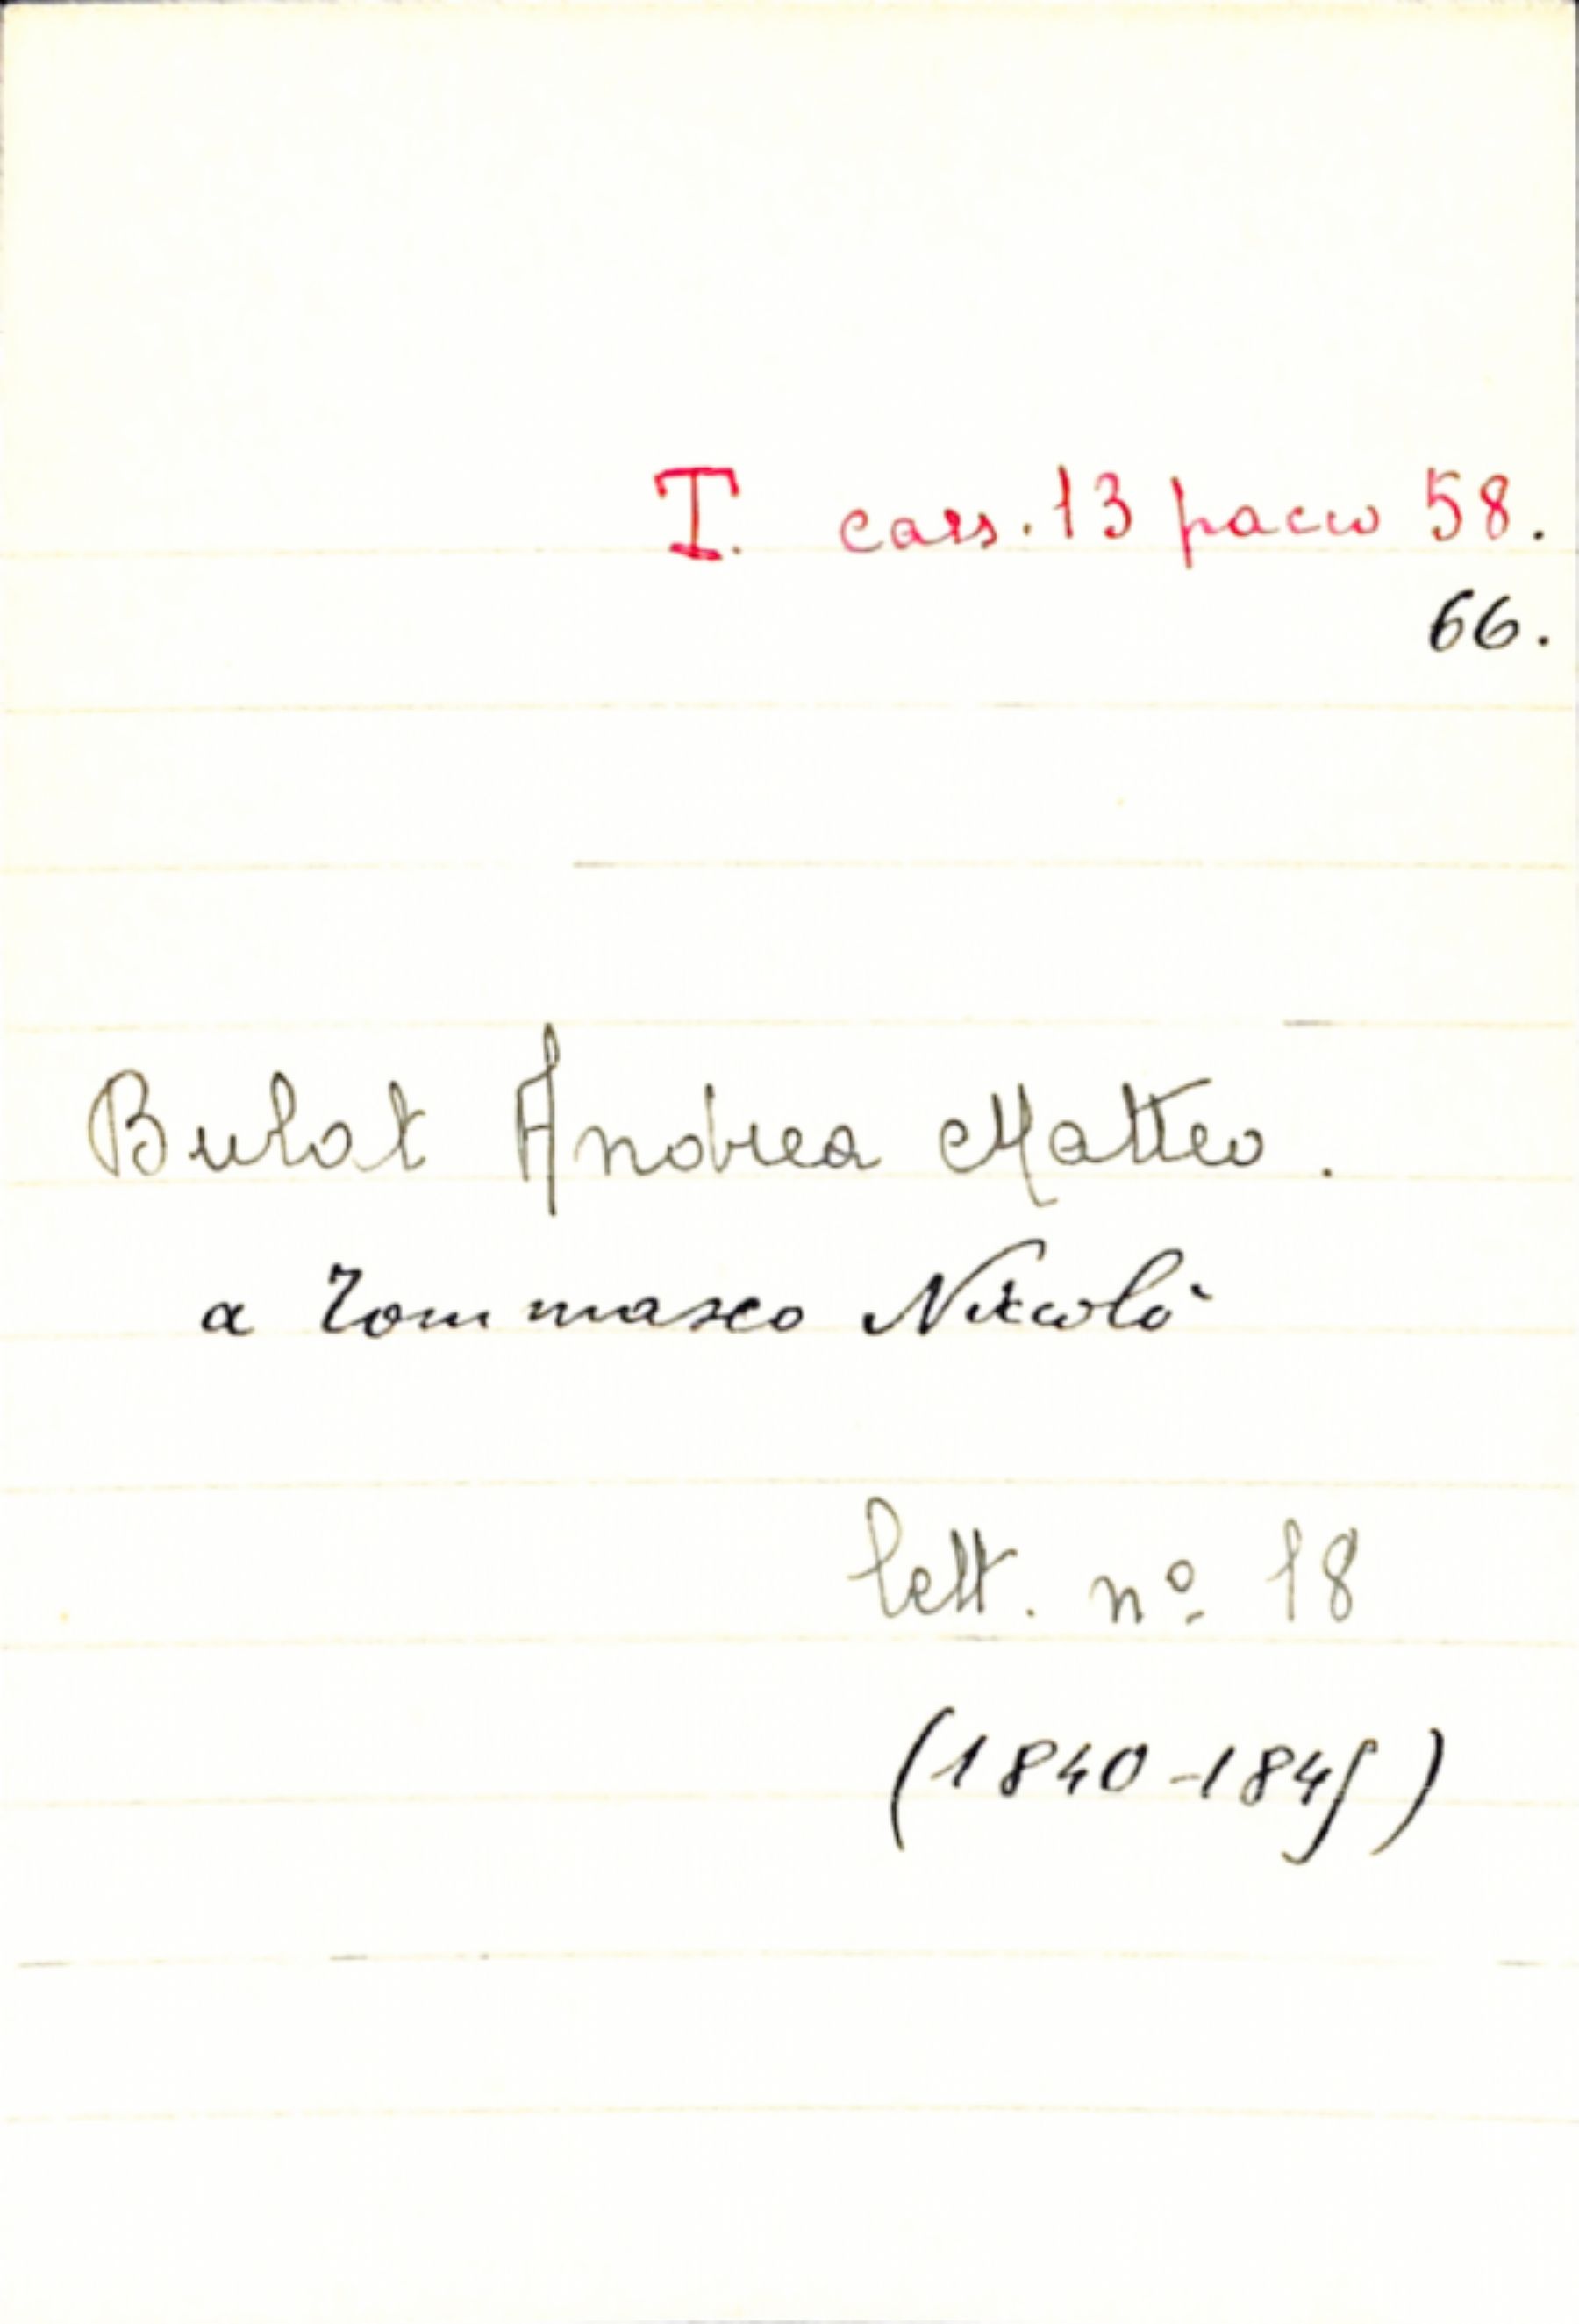 T. cass. 13 pacco 58.
66.
Bulat Andrea Matteo.
a Tommaseo Niccolò
lett. nº 18
(1840-1845)